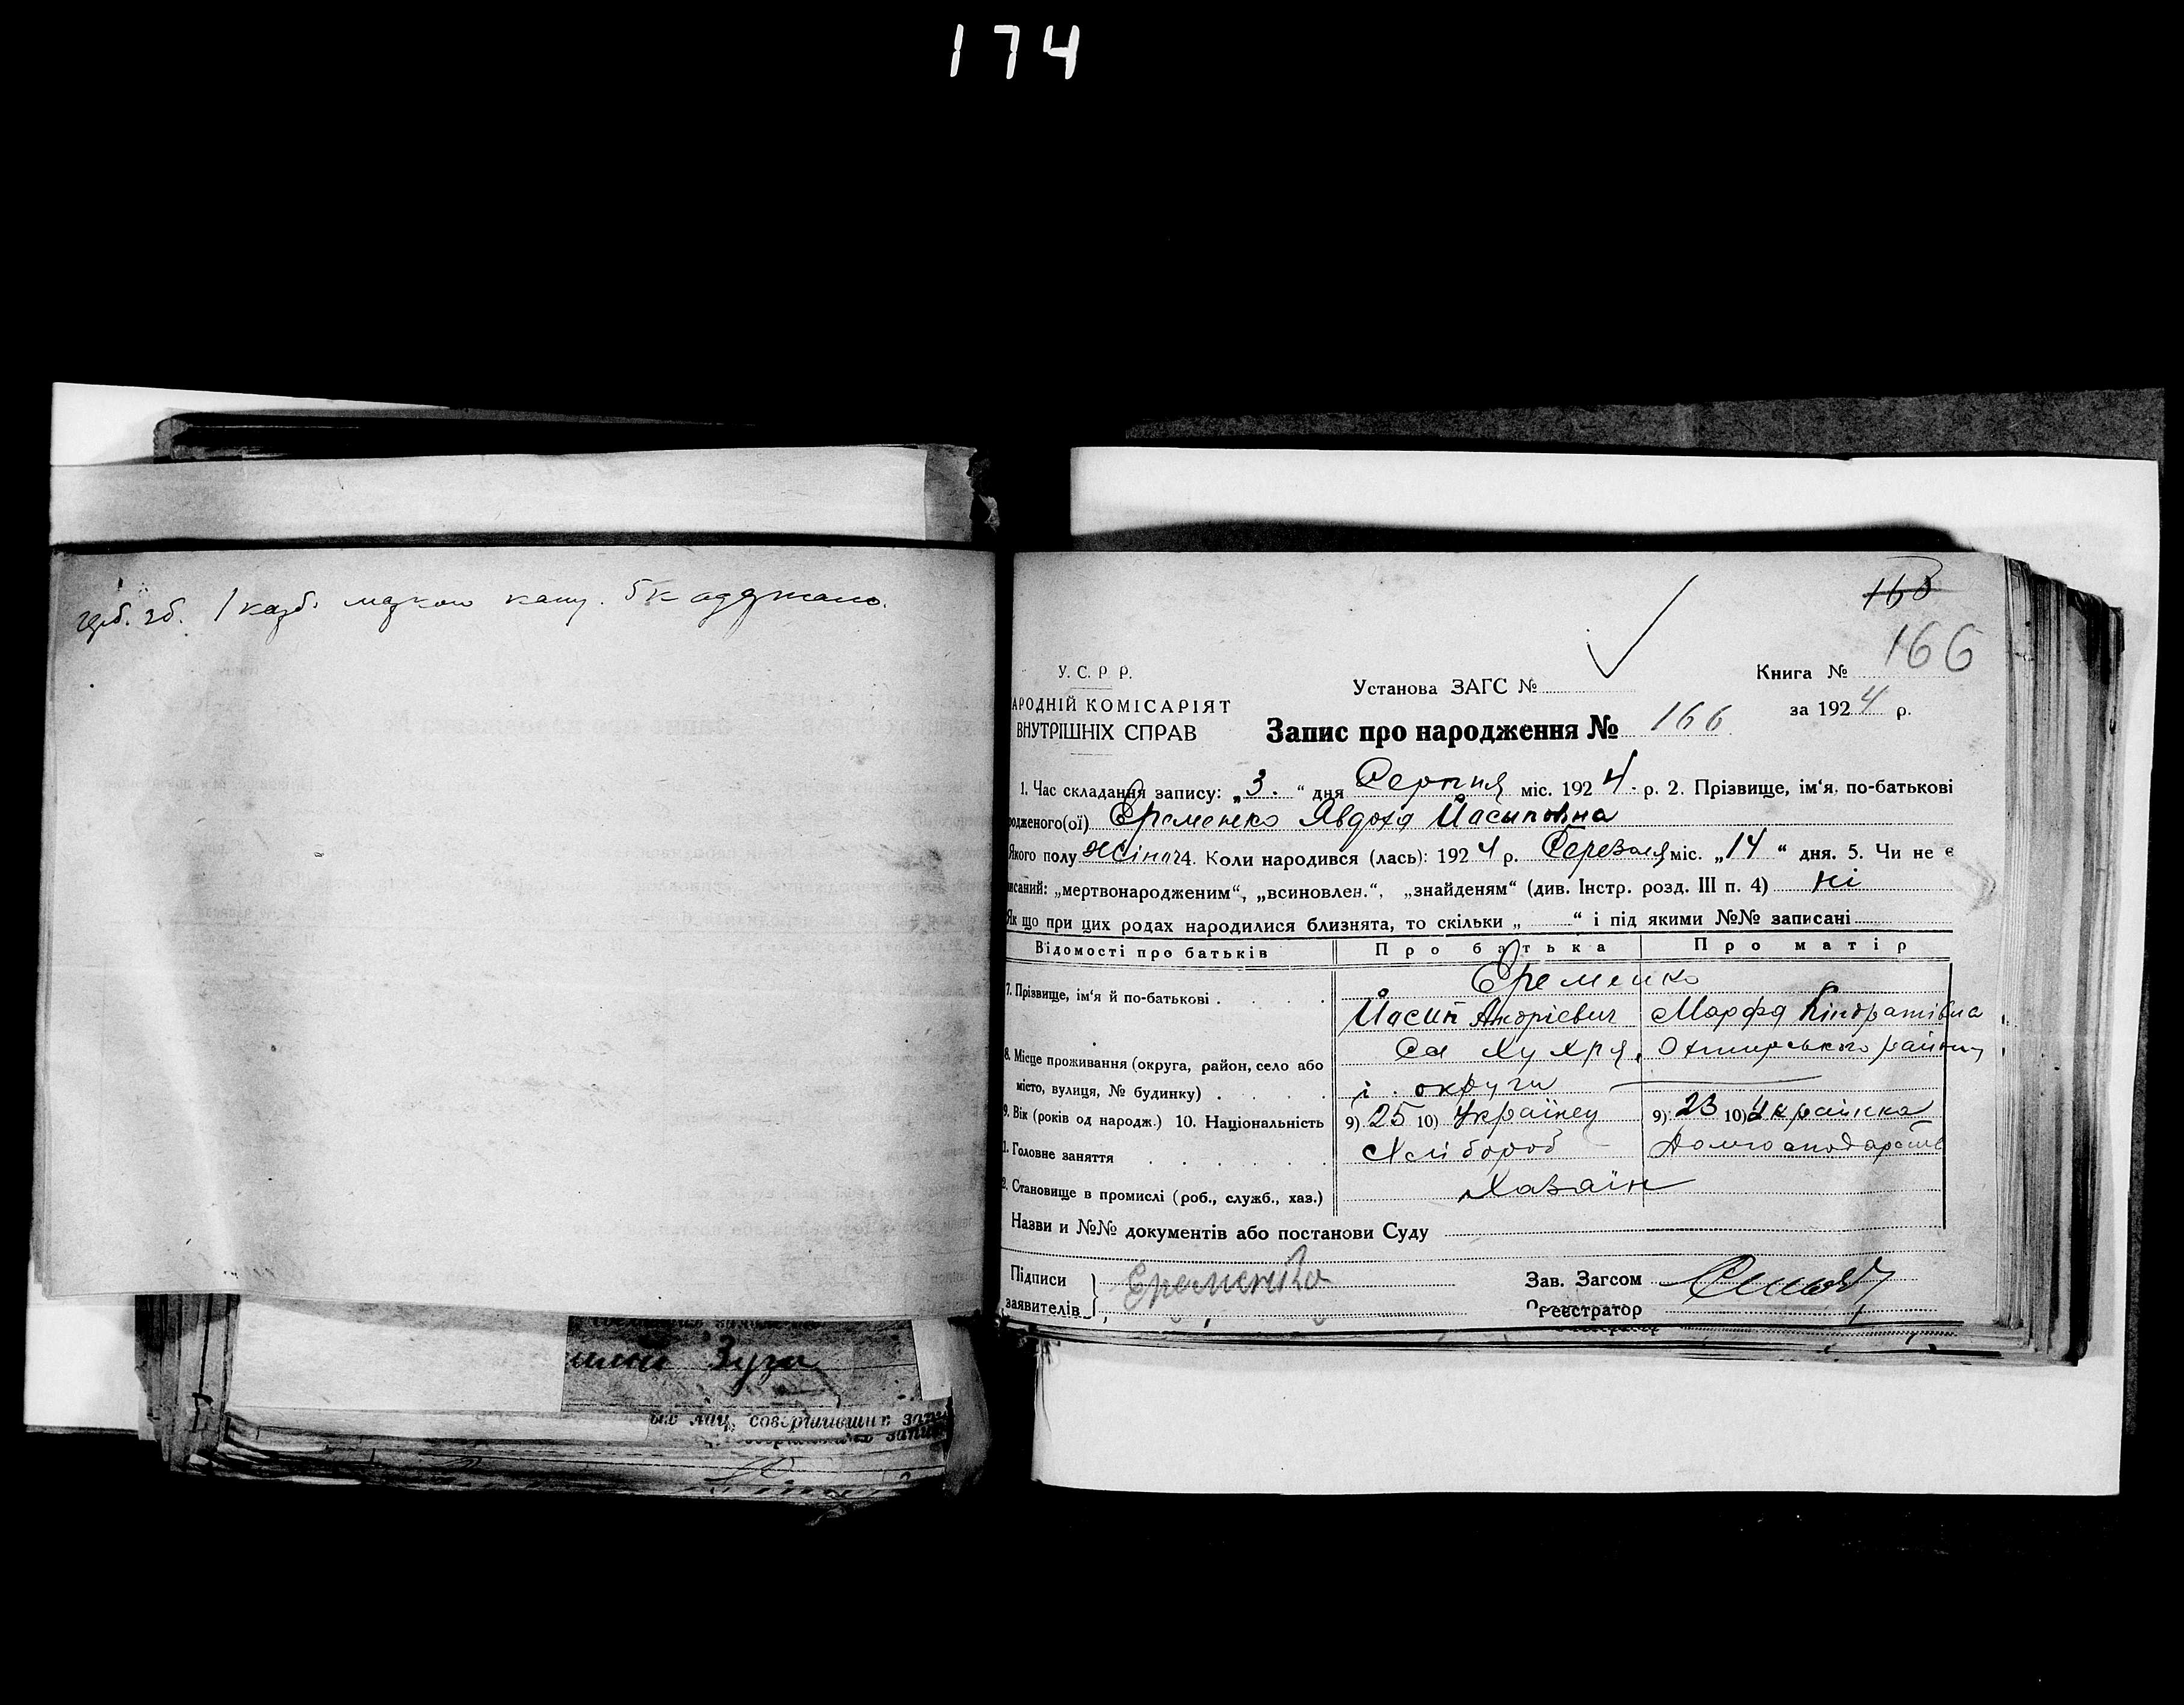 174
168
166
У. С. Р Р.
АРОДНІЙ КОМІСАРІЯТ
ВНУТРІШНІХ СПРАВ
Установа ЗАГС №
Книга №
за 1924 р.
Запис про народження № 166
1. Час складання запису: „3.“ дня Серпня міс. 1924. р. 2. Прізвище, ім'я, по-батькові
родженого(ої) Єременко Явдоха Йосиповна
Якого полу жіноч 4. Коли народився (лась): 1924 р. Березоля міс. „14“ дня. 5. Чи не є
писаний: „мертвонародженим“, „всиновлен.“, „знайденям“ (див. Інстр. розд. III п. 4) ні
Як що при цих родах народилися близнята, то скільки „ “ і під якими №№ записані
Відомості про батьків Про батька Про матір
7. Прізвище, ім'я й по-батькові Єременко
Йосип Андрієвич Марфа Кіндратівна
8. Місце проживання (округа, район, село або Сл Хухря, Охтирського району
місто, вулиця, № будинку) і округи
9. Вік (років од народж.) 10. Національність 9) 25 10) Українец 9) 23 10) Українка
1. Головне заняття Хлібороб Домгосподарств
2. Становище в промислі (роб., служб., хаз.) Хазаїн
Назви и №№ документів або постанови Суду
Підписи
заявителів } Єременко
Зав. Загсом
Реєстратор
лиц, совершивших запи